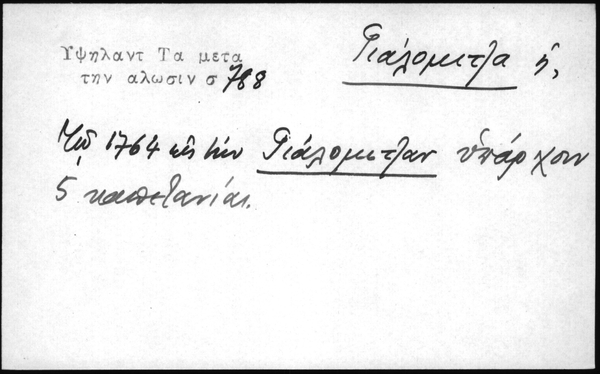 Υψηλαντ Τα μετα
την αλωσιν σ 788
Γιάλομιτζα ἡ,
Τῷ 1764 εἰς τὴν Γιάλομιτζαν ὑπάρχουν
5 καπετανίαι.